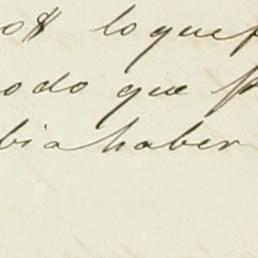 os lo que
odo que
bia haber